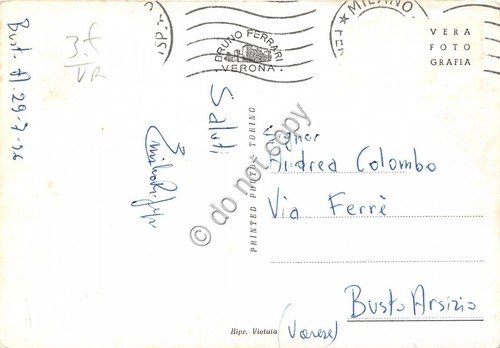 Bust. A. 29-7-56
3f
VR
BRUNO FERRARI
VERONA
MILANO
VERA
FOTO
GRAFIA
Saluti
PRINTED PHOTO TORINO
Signor
Andrea Colombo
Via Ferrè
Busto Arsizio
(Varese)
Ripr. Vietata
© do not copy